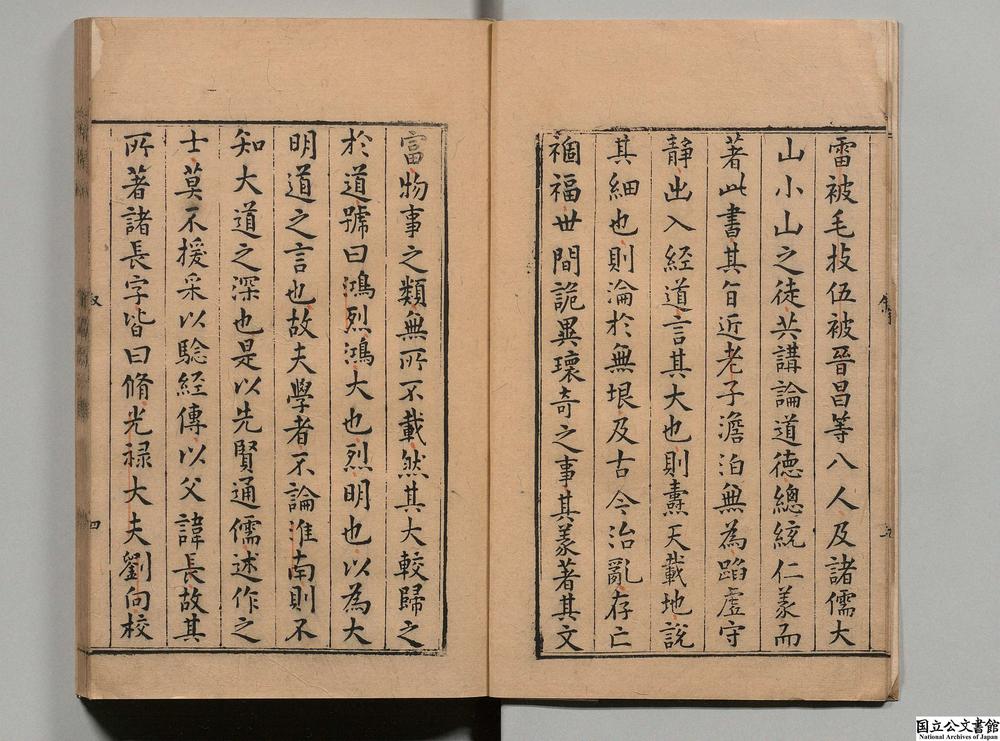 雷被毛技伍被晉昌等八人及諸儒大
山小山之徒共講論道德總統仁義而
著此書其旨近老子澹泊無為蹈虛守
靜出入經道言其大也則燾天載地說
其細也則淪於無垠及古今治亂存亡
禍福世間詭異瓌奇之事其義著其文
富物事之類無所不載然其大較歸之
於道號曰鴻烈鴻大也烈明也以為大
明道之言也故夫學者不論淮南則不
知大道之深也是以先賢通儒述作之
士莫不援采以驗經傳以父諱長故其
所著諸長字皆曰脩光祿大夫劉向校
四
国立公文書館
National Archives of Japan